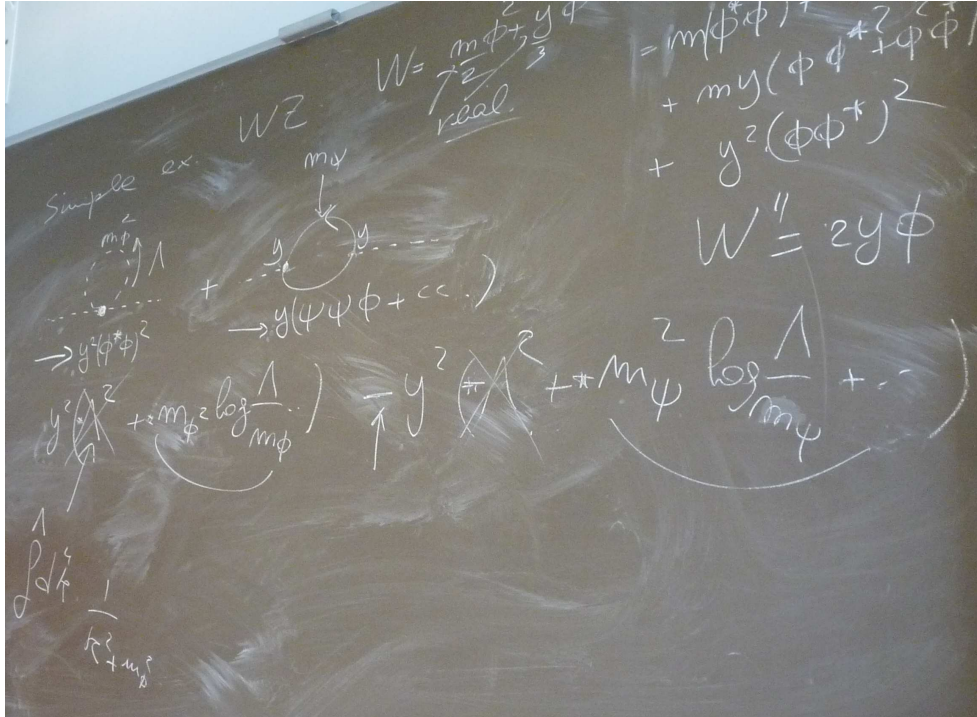 Simple ex. WZ W = m/2 φ² + y/3 φ³
real.
= m(φ*φ)
+ my(φφ*² + φ²φ*)
+ y²(φφ*)²
W'' = 2yφ
mφ² Λ + y mψ y
→ y²(φ*φ)² → y(ψψφ + cc.)
y²(Λ² + mφ² log Λ/mφ ..) - y²(Λ² + mψ² log Λ/mψ + ..)
∫^Λ d⁴k 1/(k² + mφ²)